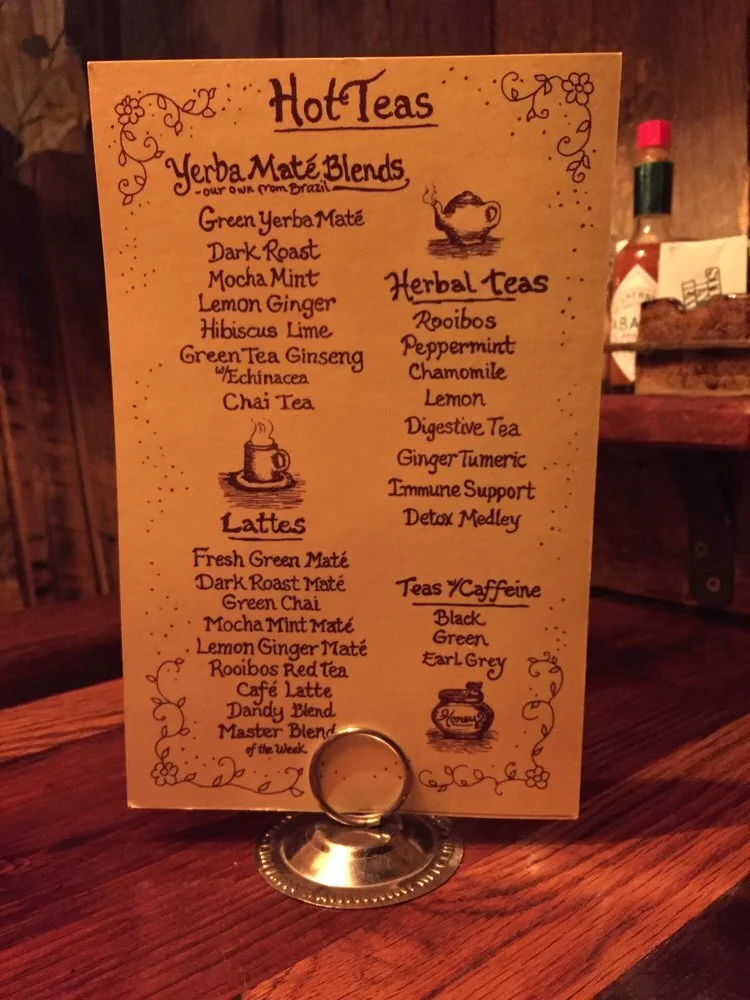 Hot Teas
Yerba Maté Blends
-our own from Brazil
Green Yerba Maté
Dark Roast
Mocha Mint
Lemon Ginger
Hibiscus Lime
Green Tea Ginseng
w/Echinacea
Chai Tea
Lattes
Fresh Green Maté
Dark Roast Maté
Green Chai
Mocha Mint Maté
Lemon Ginger Maté
Rooibos Red Tea
Café Latte
Dandy Blend
Master Blend
of the Week
Herbal teas
Rooibos
Peppermint
Chamomile
Lemon
Digestive Tea
Ginger Tumeric
Immune Support
Detox Medley
Teas w/Caffeine
Black
Green
Earl Grey
Honey